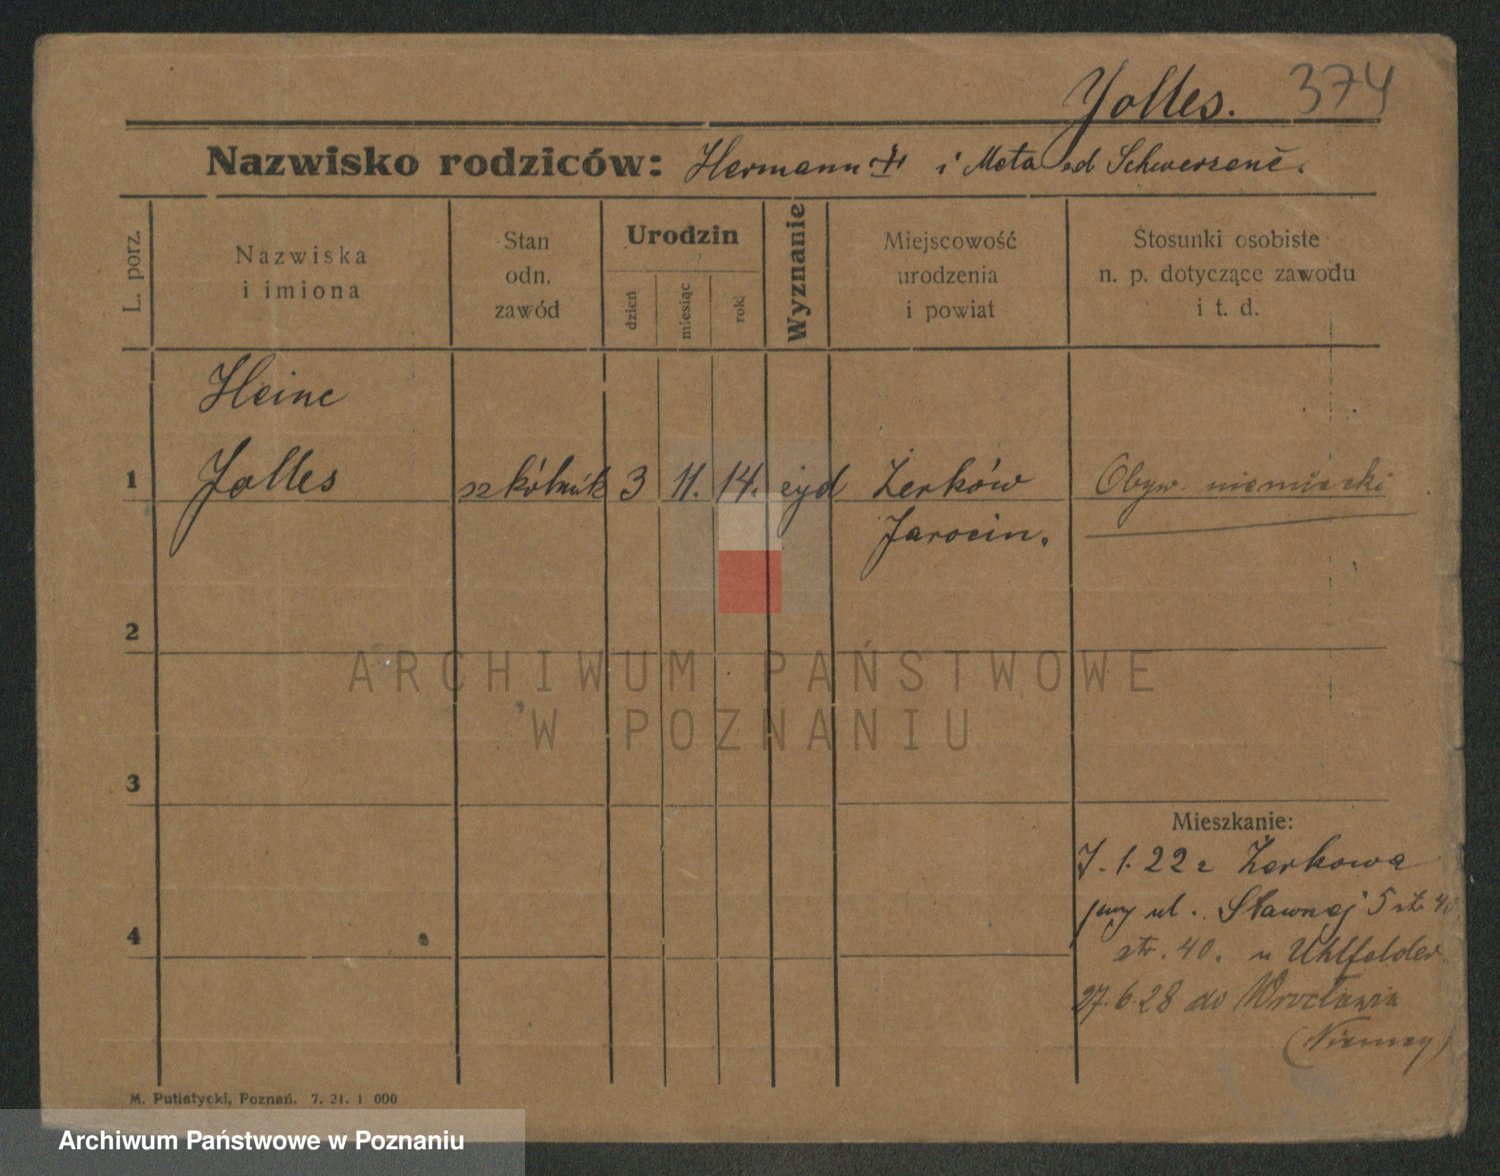 Jolles. 374
Nazwisko rodziców: Hermann i Meta
L. porz.
Nazwiska
i imiona
Stan
odn.
zawód
Urodzin
dzień
miesiąc
rok
Wyznanie
Miejscowość
urodzenia
i powiat
Stosunki osobiste
n. p. dotyczące zawodu
i t. d.
Heinc
1 Jolles szkólnik 3 11. 14. żyd Żerków Obyw. niemiecki
Jarocin.
2
3
4
Mieszkanie:
7. 1. 22 z Żerkowa
przy ul. Sławnej 5
str. 40. u Uhlfelder
27.6.28 do Wrocławia
(Niemcy)
M. Putiatycki, Poznań. 7. 21. 1 000
ARCHIWUM PAŃSTWOWE
W POZNANIU
Archiwum Państwowe w Poznaniu